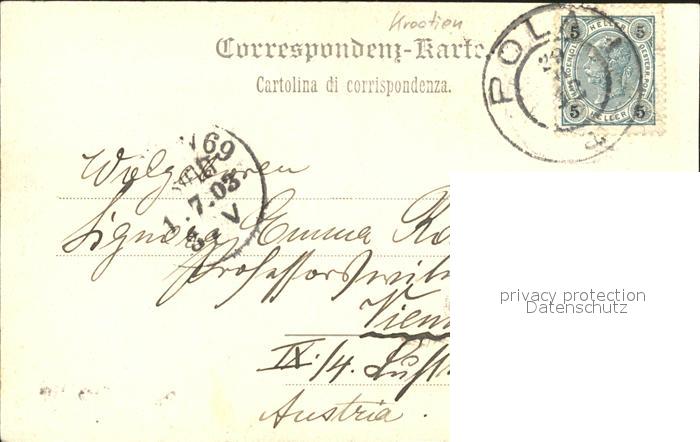 Kroatien
Correspondenz-Karte.
Cartolina di corrispondenza.
POLA
5 HELLER 5
5 HELLER 5
69
1.7.03
V
Wolgeboren
Signora Emma Ro
Professorswitwe
Vienn
IX./4.
Austria.
privacy protection
Datenschutz